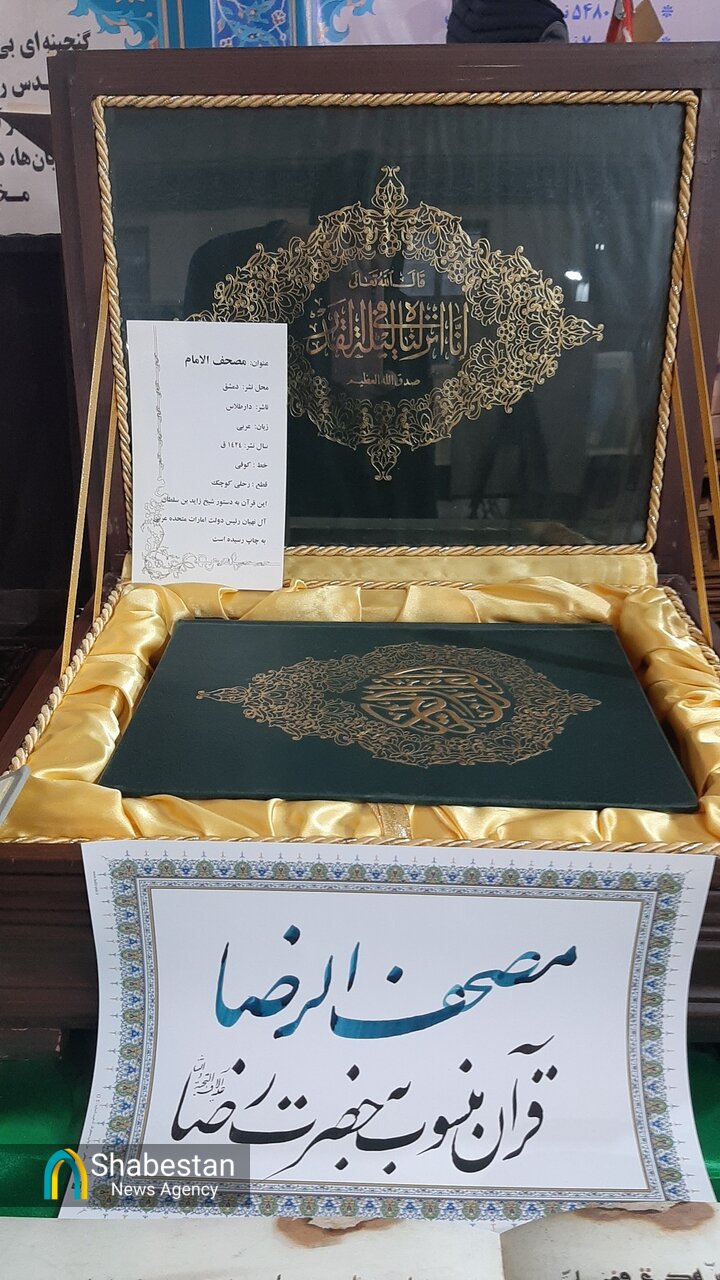 گنجینه‌ای بی
دس
۵۴۸۰
قال الله تعالى
إنا أنزلناه في ليلة القدر
صدق الله العظيم
عنوان: مصحف الامام
محل نشر: دمشق
ناشر: دارطلاس
زبان: عربی
سال نشر: ۱۴۲۴ ق
خط: کوفی
قطع: رحلی کوچک
این قرآن به دستور شیخ زاید بن سلطان
آل نهیان رئیس دولت امارات متحده عربی
به چاپ رسیده است
مصحف الرضا
قرآن منسوب به حضرت رضا
Shabestan
News Agency